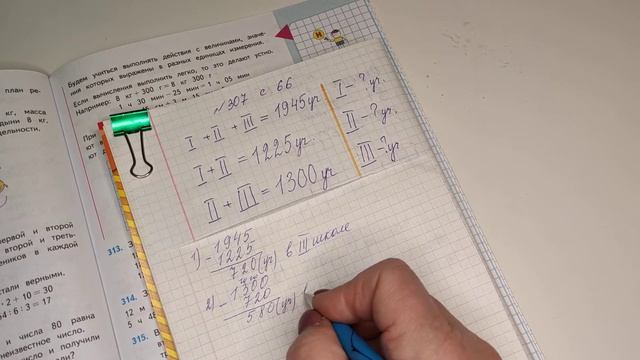 Будем учиться выполнять действия с величинами, значе-
ния которых выражены в разных единицах измерения.
Если вычисления выполнить легко, то это делают устно.
Например: 8 кг + 300 г = 8 кг 300 г
1 ч 30 мин − 25 мин = 1 ч 05 мин
план ре-
кг, масса
дыни 8 кг,
дельности.
первой и второй
второй и треть-
еников в каждой
стали верными.
· 2 + 10 = 30
+ 64 : 6 : 3 = 17
и числа 80 равна
неизвестное число.
313.
314.
12 м
5 ч
315.
№ 307 с. 66
I + II + III = 1945 уч.
I + II = 1225 уч.
II + III = 1300 уч
I - ? уч.
II - ? уч.
III - ? уч.
1) - 1945
1225
720 (уч) в III школе
2) - 1300
720
580 (уч)